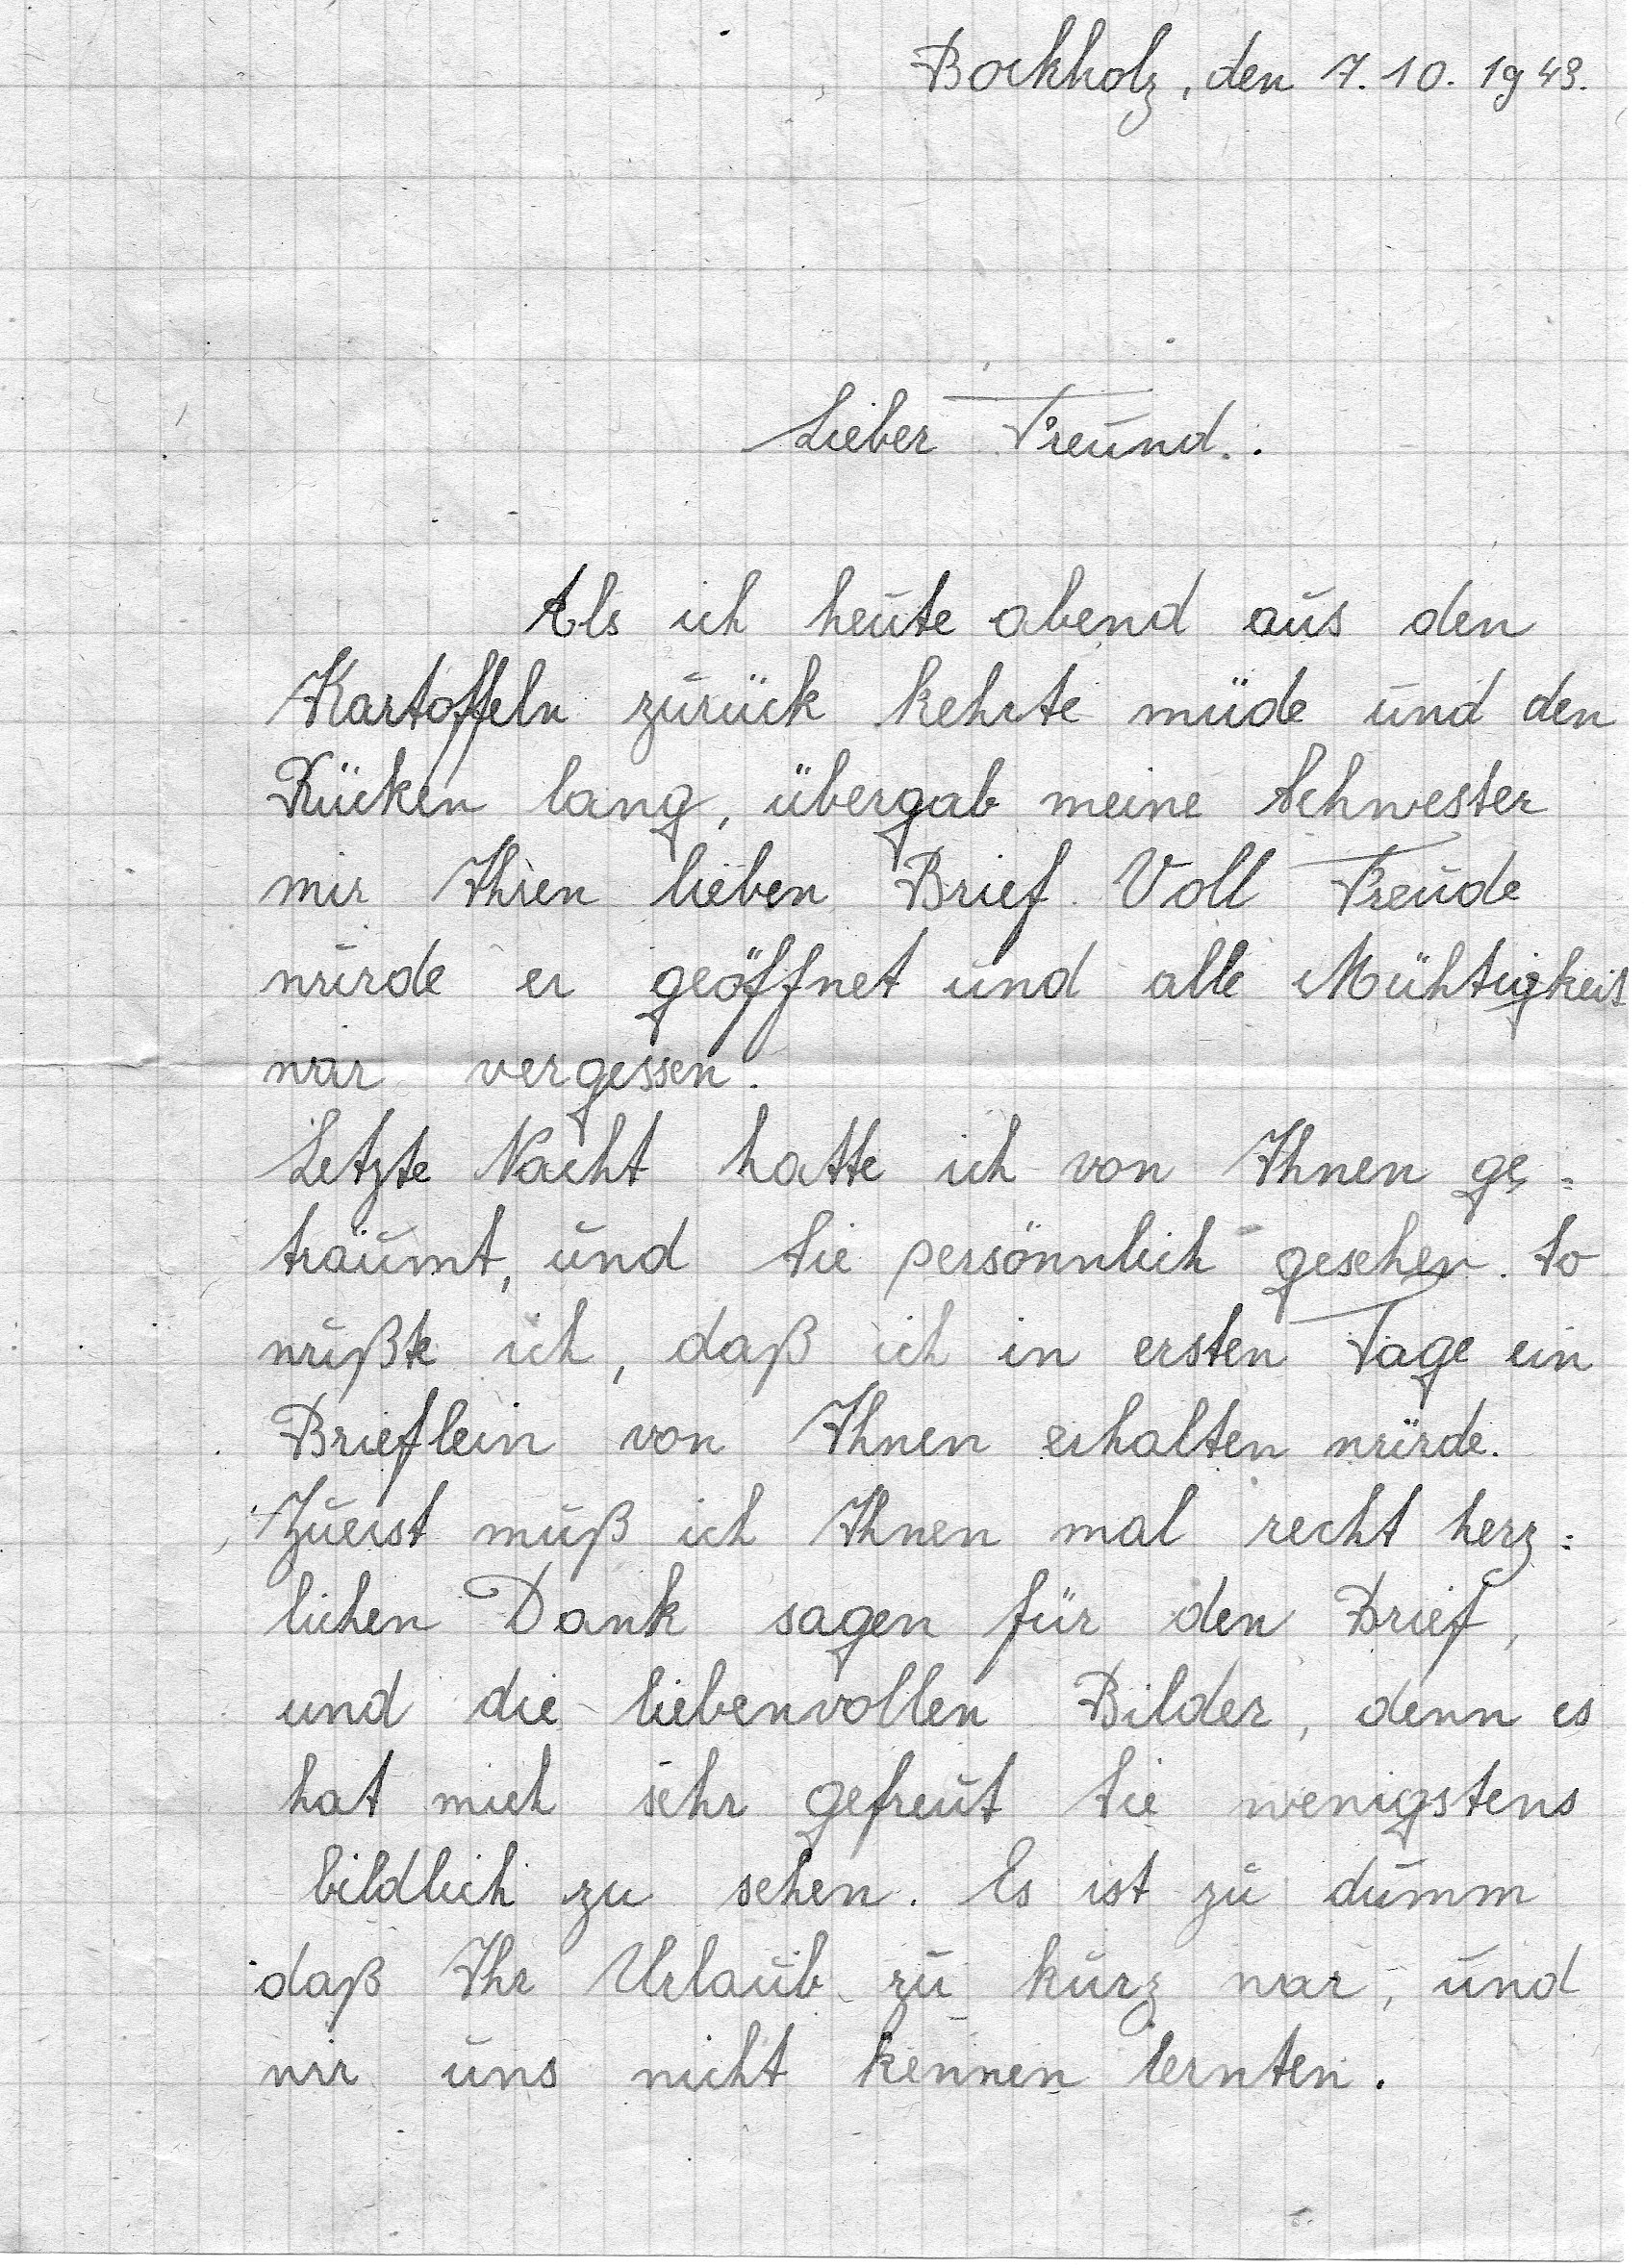 Bockholz, den 7.10.1943.
Lieber Freund.
Als ich heute abend aus den
Kartoffeln zurück kehrte müde und den
Rücken lang, übergab meine Schwester
mir Ihren lieben Brief. Voll Freude
wurde er geöffnet und alle Mühtigkeit
war vergessen.
Letzte Nacht hatte ich von Ihnen ge=
träumt, und Sie persönnlich gesehen. So
wußte ich, daß ich in ersten Tage ein
Brieflein von Ihnen erhalten würde.
Zuerst muß ich Ihnen mal recht herz=
lichen Dank sagen für den Brief,
und die liebenvollen Bilder, denn es
hat mich sehr gefreut Sie wenigstens
bildlich zu sehen. Es ist zu dumm
daß Ihr Urlaub zu kurz war, und
wir uns nicht kennen lernten.